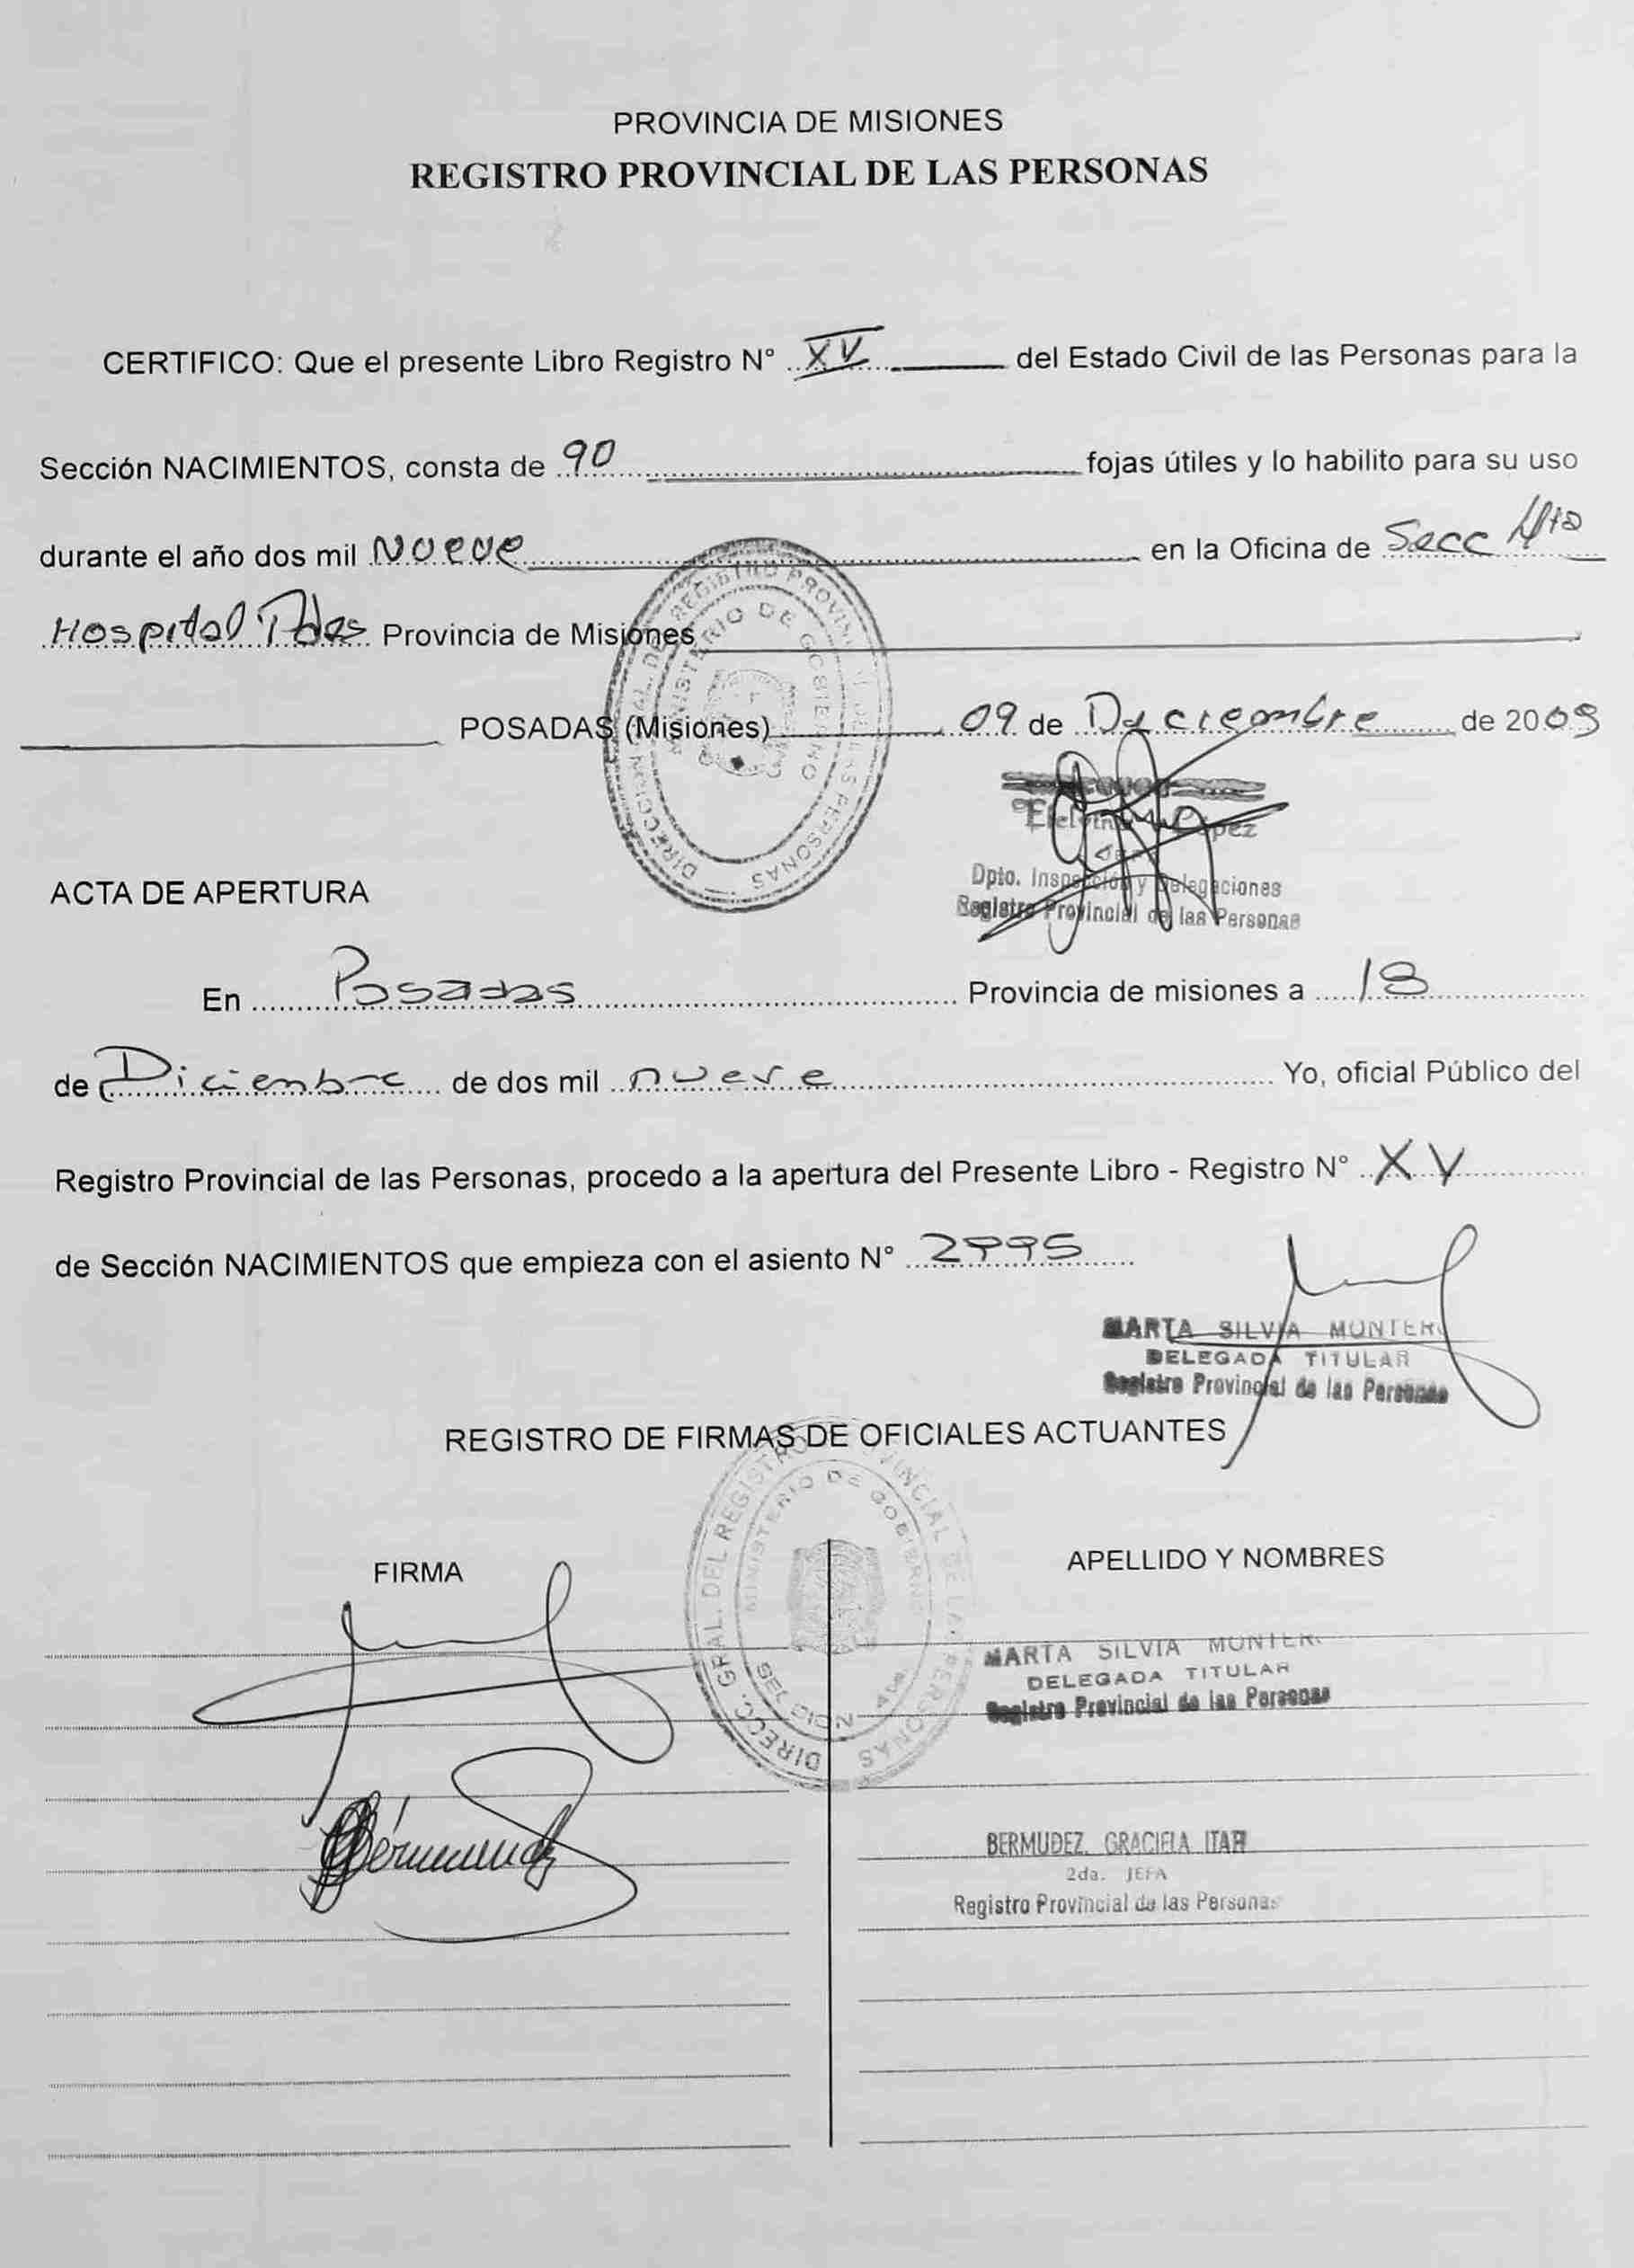 PROVINCIA DE MISIONES
REGISTRO PROVINCIAL DE LAS PERSONAS
CERTIFICO: Que el presente Libro Registro N° XV del Estado Civil de las Personas para la
Sección NACIMIENTOS, consta de 90 fojas útiles y lo habilito para su uso
durante el año dos mil Nueve en la Oficina de Secc
Hospital Pdas Provincia de Misiones
POSADAS (Misiones) 09 de Diciembre de 2009
López
Dpto. Inspección y Delegaciones
Registro Provincial de las Personas
ACTA DE APERTURA
En Posadas Provincia de misiones a 18
de Diciembre de dos mil nueve Yo, oficial Público del
Registro Provincial de las Personas, procedo a la apertura del Presente Libro - Registro N° XV
de Sección NACIMIENTOS que empieza con el asiento N°
MARTA SILVIA MONTERO
DELEGADA TITULAR
Registro Provincial de las Personas
REGISTRO DE FIRMAS DE OFICIALES ACTUANTES
DIRECC. GRAL. DEL REGISTRO PROVINCIAL DE LAS PERSONAS
MINISTERIO DE GOBIERNO
FIRMA APELLIDO Y NOMBRES
MARTA SILVIA MONTERO
DELEGADA TITULAR
Registro Provincial de las Personas
BERMUDEZ, GRACIELA ITATI
2da. JEFA
Registro Provincial de las Personas